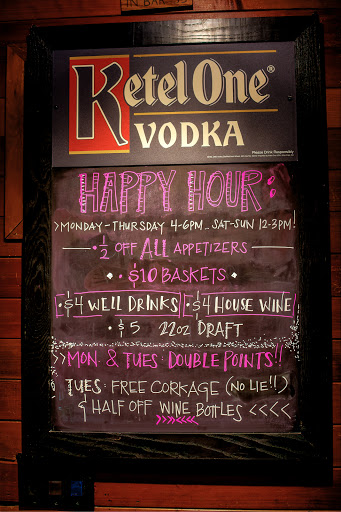 IN BAR
Ketel One®
VODKA
Please Drink Responsibly
HAPPY HOUR:
MONDAY - THURSDAY 4-6PM... SAT-SUN 12-3PM!
• 1/2 OFF ALL APPETIZERS
• $10 BASKETS •
• $4 WELL DRINKS • $4 HOUSE WINE
• $5 22oz DRAFT
>> MON. & TUES: DOUBLE POINTS!!
TUES: FREE CORKAGE (NO LIE!!)
& HALF OFF WINE BOTTLES <<<<